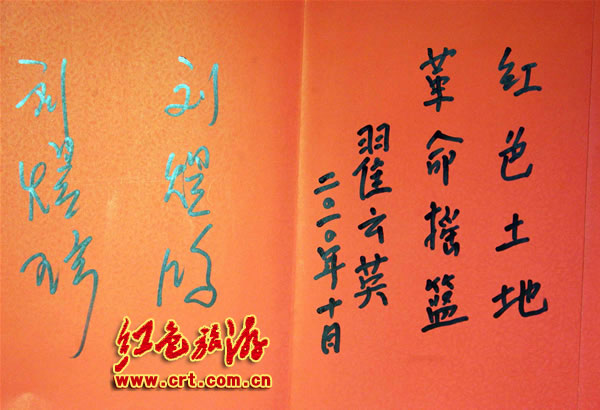 红色土地
革命摇篮
翟云英
二〇一〇年十月
刘煜鸿
红色旅游
www.crt.com.cn